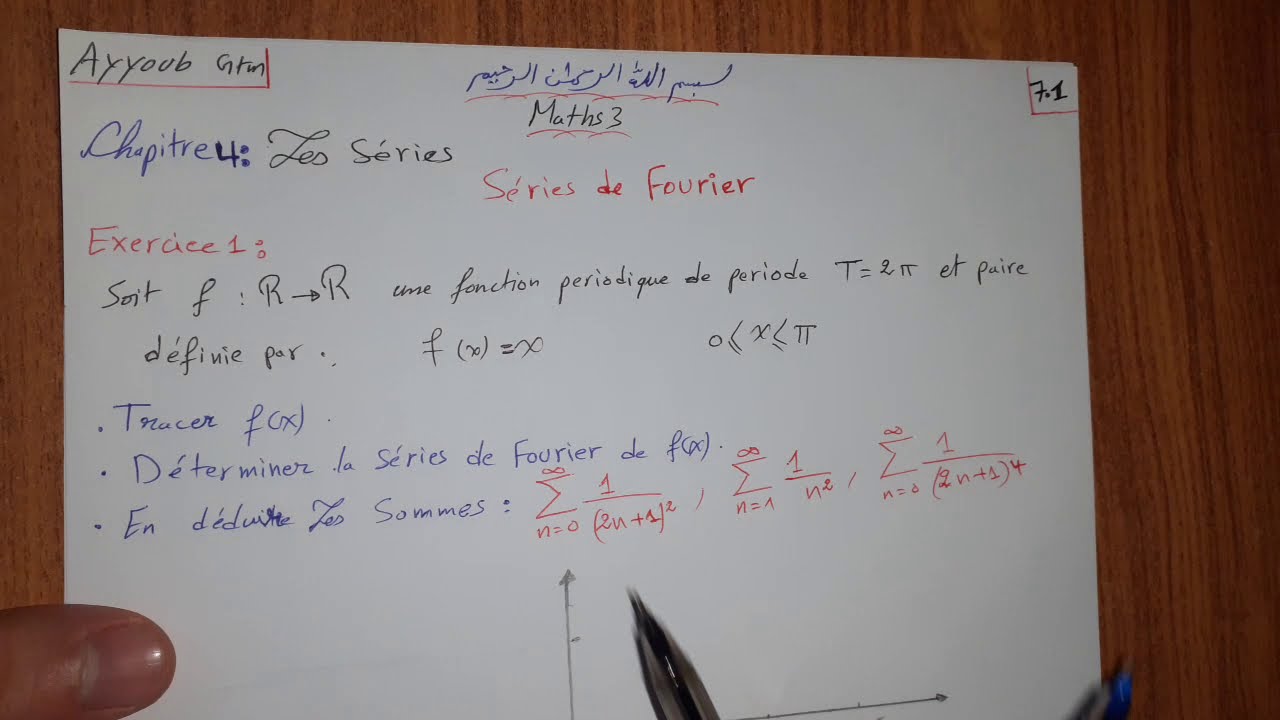 Ayyoub Gtm
بسم الله الرحمان الرحيم
7.1
Maths 3
Chapitre 4: Les Séries
Séries de Fourier
Exercice 1:
Soit f : ℝ→ℝ une fonction periodique de periode T=2π et paire
définie par : f(x)=x 0≤x≤π
• Tracer f(x).
• Déterminer la Séries de Fourier de f(x).
• En déduire Les Sommes : ∑_{n=0}^{∞} 1/(2n+1)², ∑_{n=1}^{∞} 1/n², ∑_{n=0}^{∞} 1/(2n+1)⁴